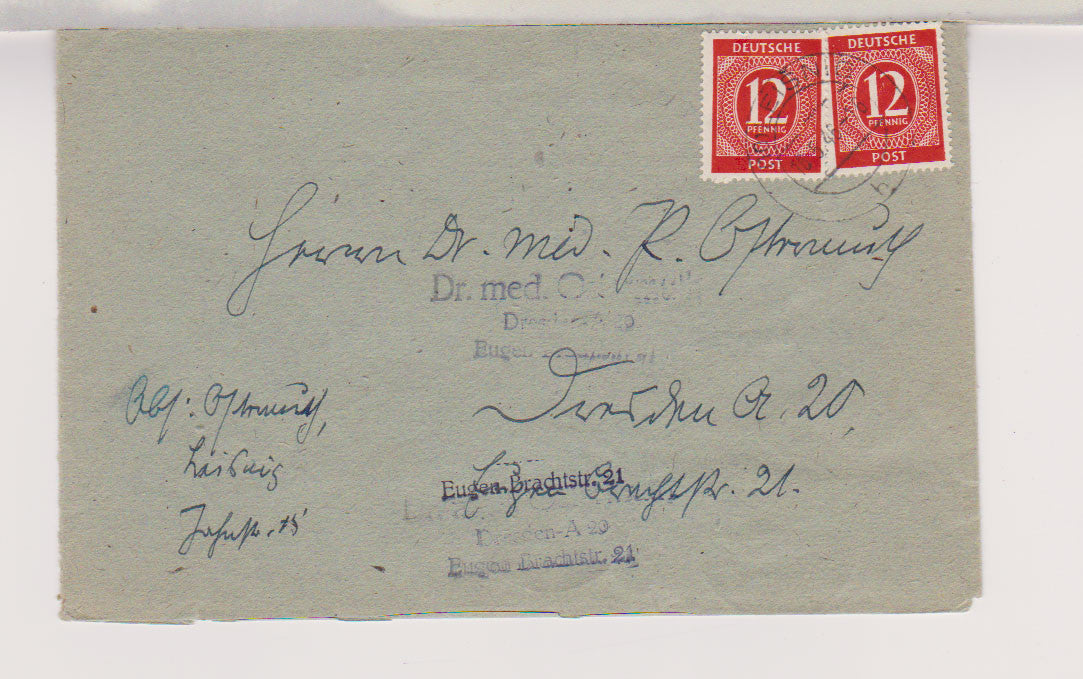 DEUTSCHE
12
PFENNIG
POST
DEUTSCHE
12
PFENNIG
POST
Herrn Dr. med. R. Ostermuth
Dr. med.
Dresden-A 20
Eugen
Dresden A. 20,
Eugen Brachtstr. 21.
Eugen Brachtstr. 21
Dresden-A 20
Eugen Brachtstr. 21
Abs: Ostermuth,
Leisnig
Jahnstr. 15